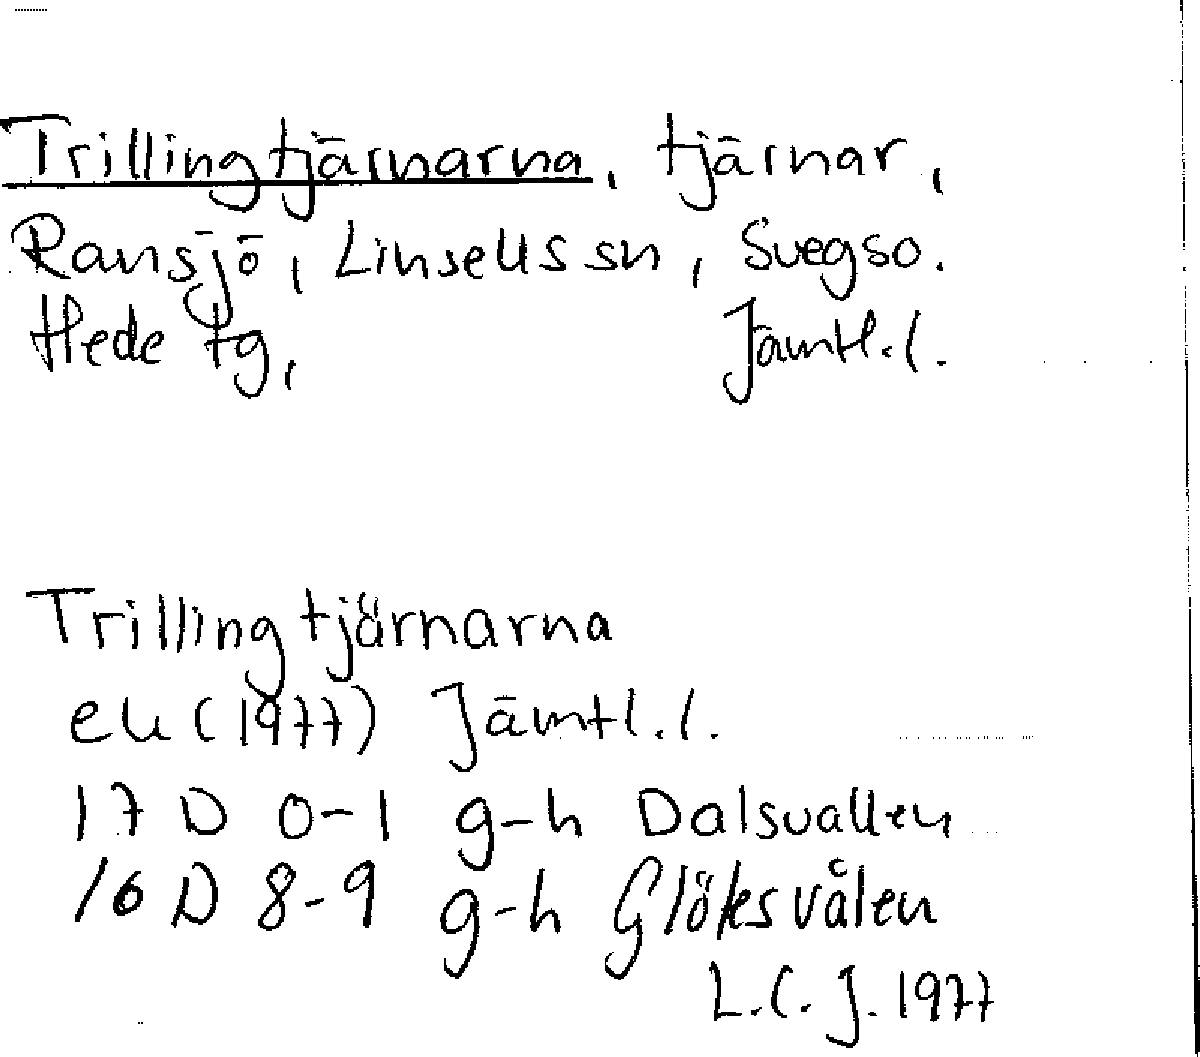 Trillingtjärnarna, tjärnar,
Ransjö, Linsells sn, Svegs so.
Hede tg, Jämtl. l.
Trillingtjärnarna
ek (1977) Jämtl. l.
17 D 0-1 g-h Dalsvallen
16 D 8-9 g-h Glöksvålen
L.C.J. 1977